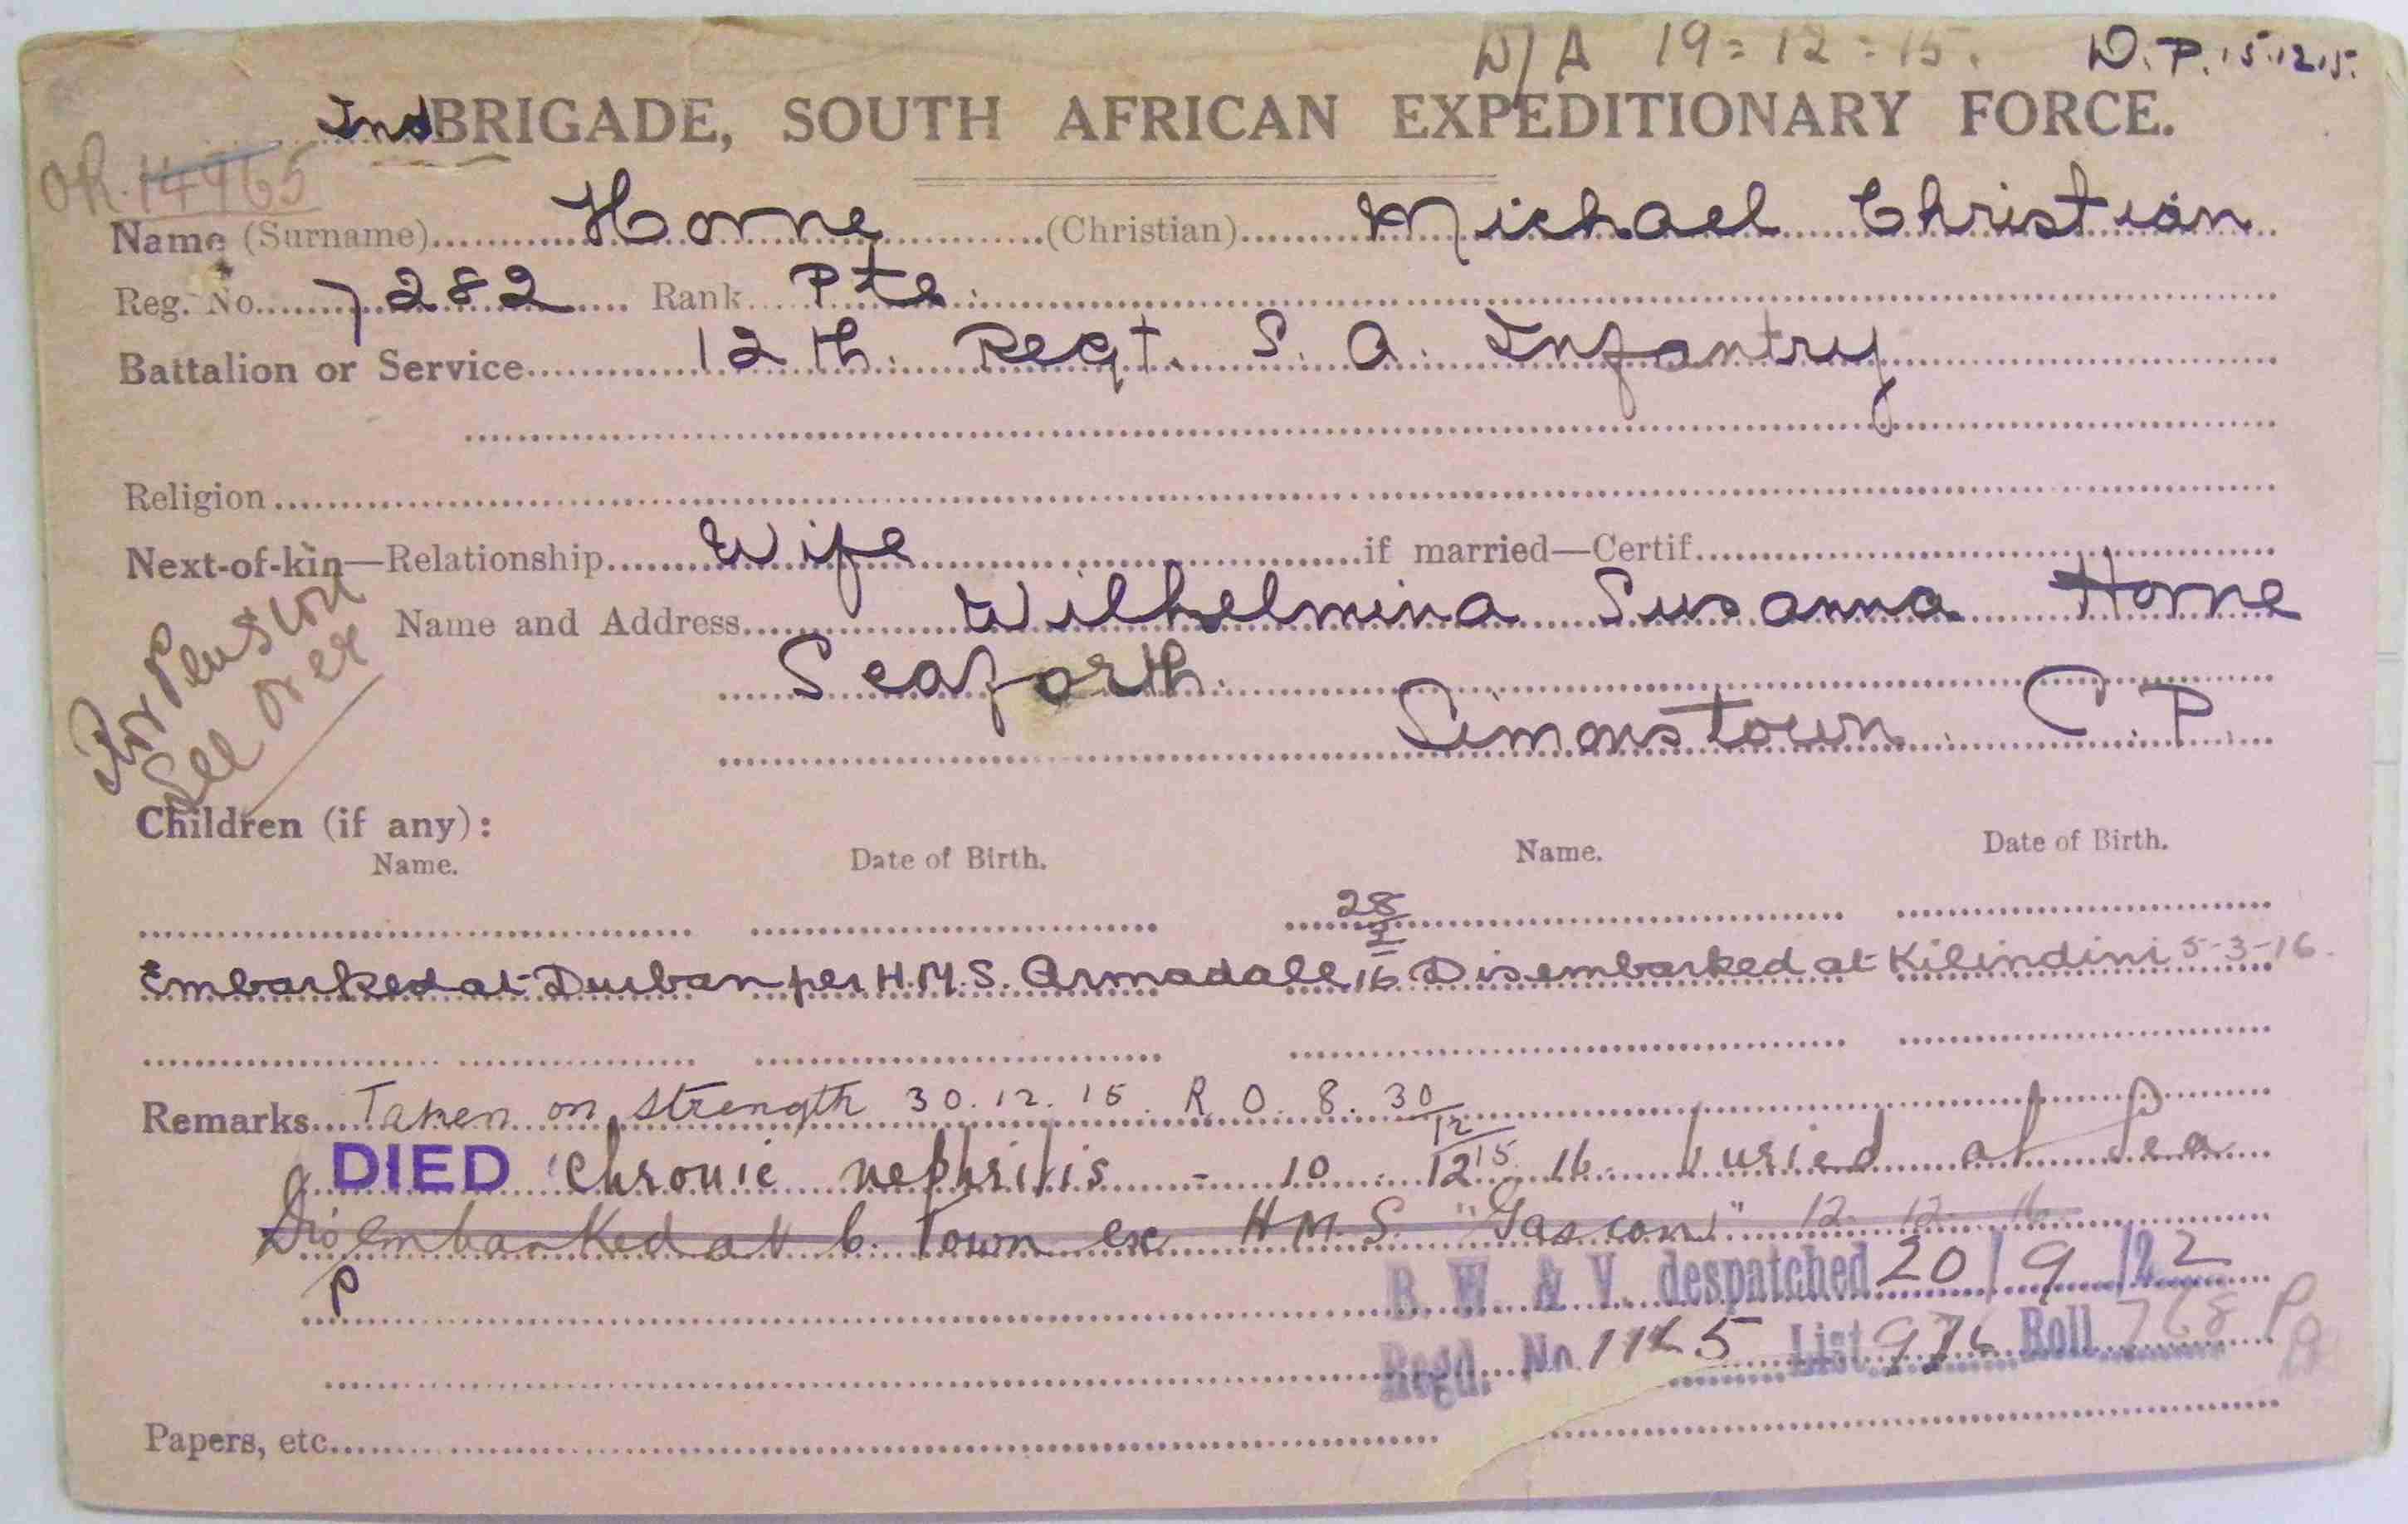 D/A 19=12=15. D.P. 15.12.15.
2nd BRIGADE, SOUTH AFRICAN EXPEDITIONARY FORCE.
OR. 14965
Name (Surname) Horne (Christian) Michael Christian
Reg. No. 7282 Rank Pte.
Battalion or Service 12th. Regt. S.A. Infantry
Religion
Next-of-kin—Relationship Wife if married—Certif.
Name and Address Wilhelmina Susanna Horne
Seaforth.
Simonstown. C.P.
For Pension
See over
Children (if any):
Name. Date of Birth. Name. Date of Birth.
Embarked at Durban per H.M.S. Armadale 28/2/16 Disembarked at Kilindini 5-3-16.
Remarks Taken on strength 30.12.15. R.O. 8. 30/12/15
DIED chronic nephritis - 10.12.16. buried at Sea
Disembarked at C. Town ex H.M.S. "Gascon" 12.12.16
P
B. W. & V. despatched 20/9/22
Regd. No. List 976 Roll 768
Papers, etc.